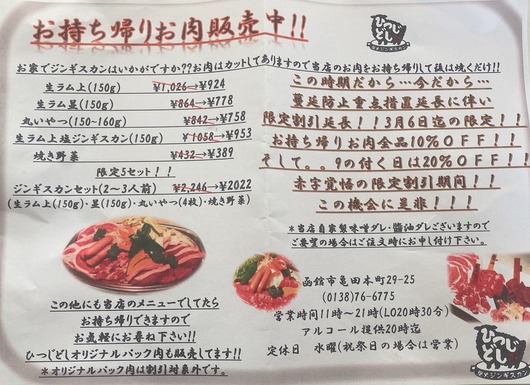 お持ち帰りお肉販売中!!
ひつじどし
生ラムジンギスカン
お家でジンギスカンはいかがですか??お肉はカットしてありますので当店のお肉をお持ち帰りして後は焼くだけ!!
生ラム上(150g) ¥1,026→¥924
生ラム並(150g) ¥864→¥778
丸いやつ(150～160g) ¥842→¥758
生ラム上塩ジンギスカン(150g) ¥1058→¥953
焼き野菜 ¥432→¥389
限定5セット!!
ジンギスカンセット(2～3人前) ¥2,246→¥2022
(生ラム上(150g)・並(150g)・丸いやつ(4枚)・焼き野菜)
この他にも当店のメニューでしたら
お持ち帰りできますので
お気軽にお尋ね下さい!!
ひつじどしオリジナルパック肉も販売してます!!
*オリジナルパック肉は割引対象外です。
この時期だから…今だから…
蔓延防止重点措置延長に伴い
限定割引延長!!3月6日迄の限定!!
お持ち帰りお肉全品10%OFF!!
そして。。9の付く日は20%OFF!!
赤字覚悟の限定割引期間!!
この機会に是非!!!
*当店自家製味噌ダレ・醤油ダレございますので
ご要望の場合はご注文時にお申し付け下さい。
函館市亀田本町29-25
(0138)76-6775
営業時間11時～21時(LO20時30分)
アルコール提供20時迄
定休日 水曜(祝祭日の場合は営業)
ひつじどし
ジンギスカン